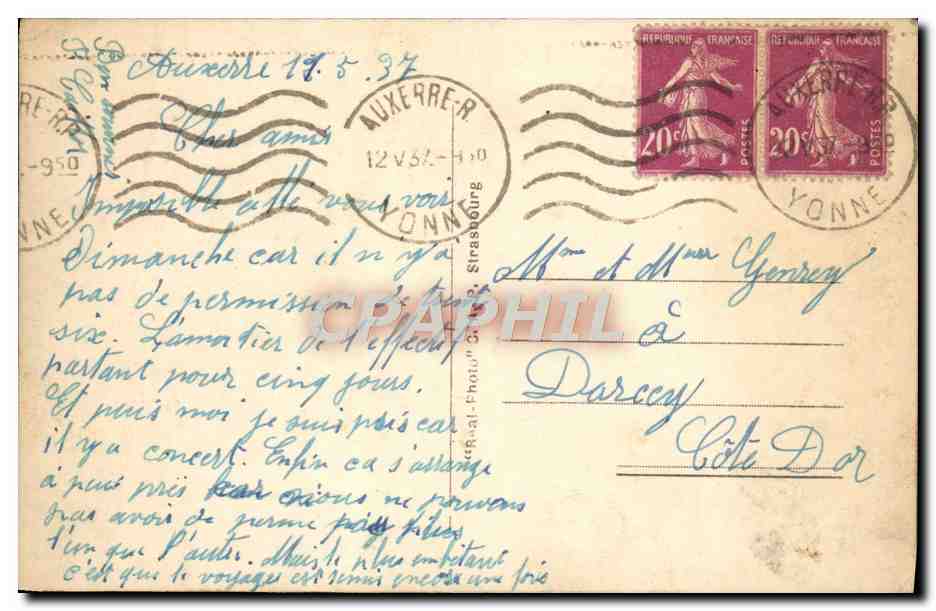 Bon
Auxerre 11.5.37
Cher amis
Impossible vous voir
Dimanche car il n'y a
pas de permission de trent
six. La mortier de l'effectif
partant pour cinq jours.
Et puis moi je suis pris car
il y a concert. Enfin ca s'arrange
à peu près car nous ne pouvons
pas avoir de perme plus
l'un que l'autre. Mais le plus embêtant
c'est que le voyage est remis encore une fois
AUXERRE-R.
12 V 37.-9 50
YONNE
RE-R.P.
-9 50
NNE
REPUBLIQUE FRANÇAISE
20c
POSTES
REPUBLIQUE FRANÇAISE
20c
POSTES
AUXERRE-R.P.
YONNE
"Réal-Photo" C.A.P. Strasbourg
CPAPHIL
Mme et Mr Genrey
à
Darcey
Côte D'or